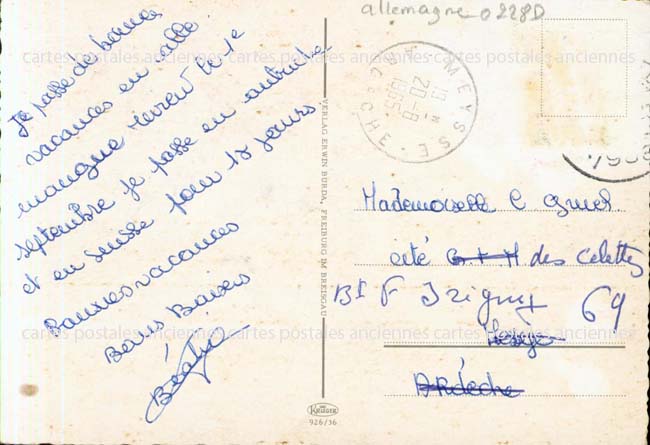 allemagne 0228D
Je passe de bonnes
vacances en calle
mangne revient le 1e
septembre je passe en autriche
et en suisse pour 15 jours
Bonnes vacances
Bons Baisers
cartes postales anciennes cartes postales anciennes cartes postales anciennes
MEYSSE
19 H
20-8
1965
ARDECHE
VERLAG ERWIN BURDA, FREIBURG IM BREISGAU
KRÜGER
926/36
Mademoiselle C
cité G + H des Calettes
Bt F Irigny 69
Ardèche
cartes postales anciennes cartes postales anciennes cartes postales anciennes